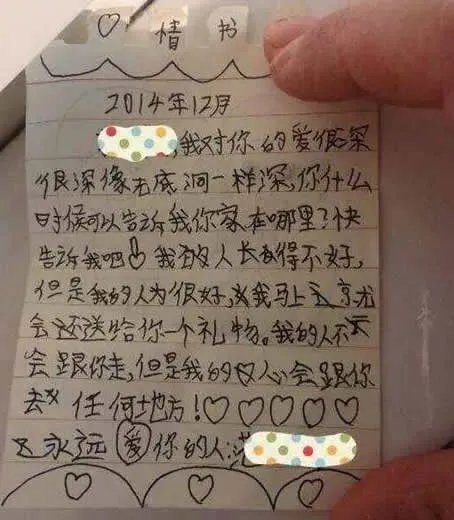 ♡ 情书
2014年12月
,我对你的爱很深
很深像无底洞一样深,你什么
时候可以告诉我你家在哪里?快
告诉我吧 我的人长得不好,
但是我的人为很好,我马上
会还送给你一个礼物。我的人不
会跟你走,但是我的心会跟你
去 任何地方!♡♡♡♡♡
永远爱你的人:
♡ ♡ ♡